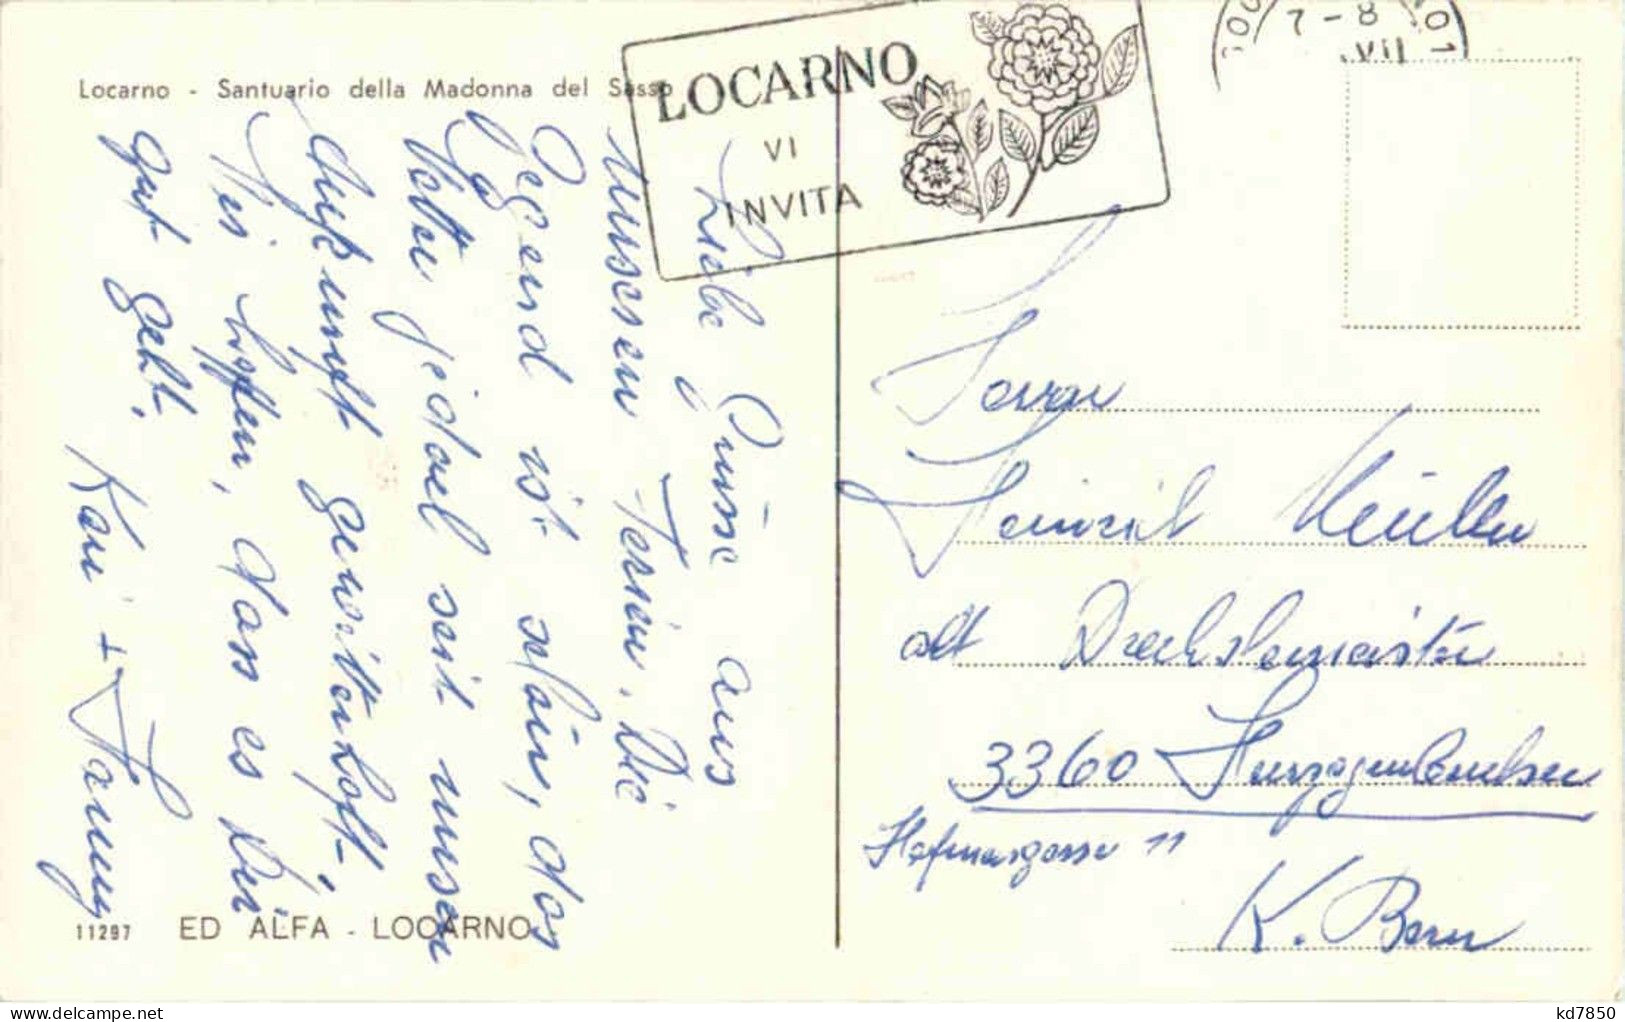 Locarno - Santuario della Madonna del Sasso
LOCARNO
VI
INVITA
7-8
VII
Liebe Grüsse aus
unserem Tessin. Die
Gegend ist schön, das
Wetter jedoch seit unserer
gewitterhaft.
Wir hoffen, dass es Dir
gut geht.
Kari + Fanny
11297 ED ALFA - LOCARNO
Herrn
Heinrich Müller
alt Drechslermeister
3360 Herzogenbuchsee
Hofmattgasse 11
K. Bern
kd7850